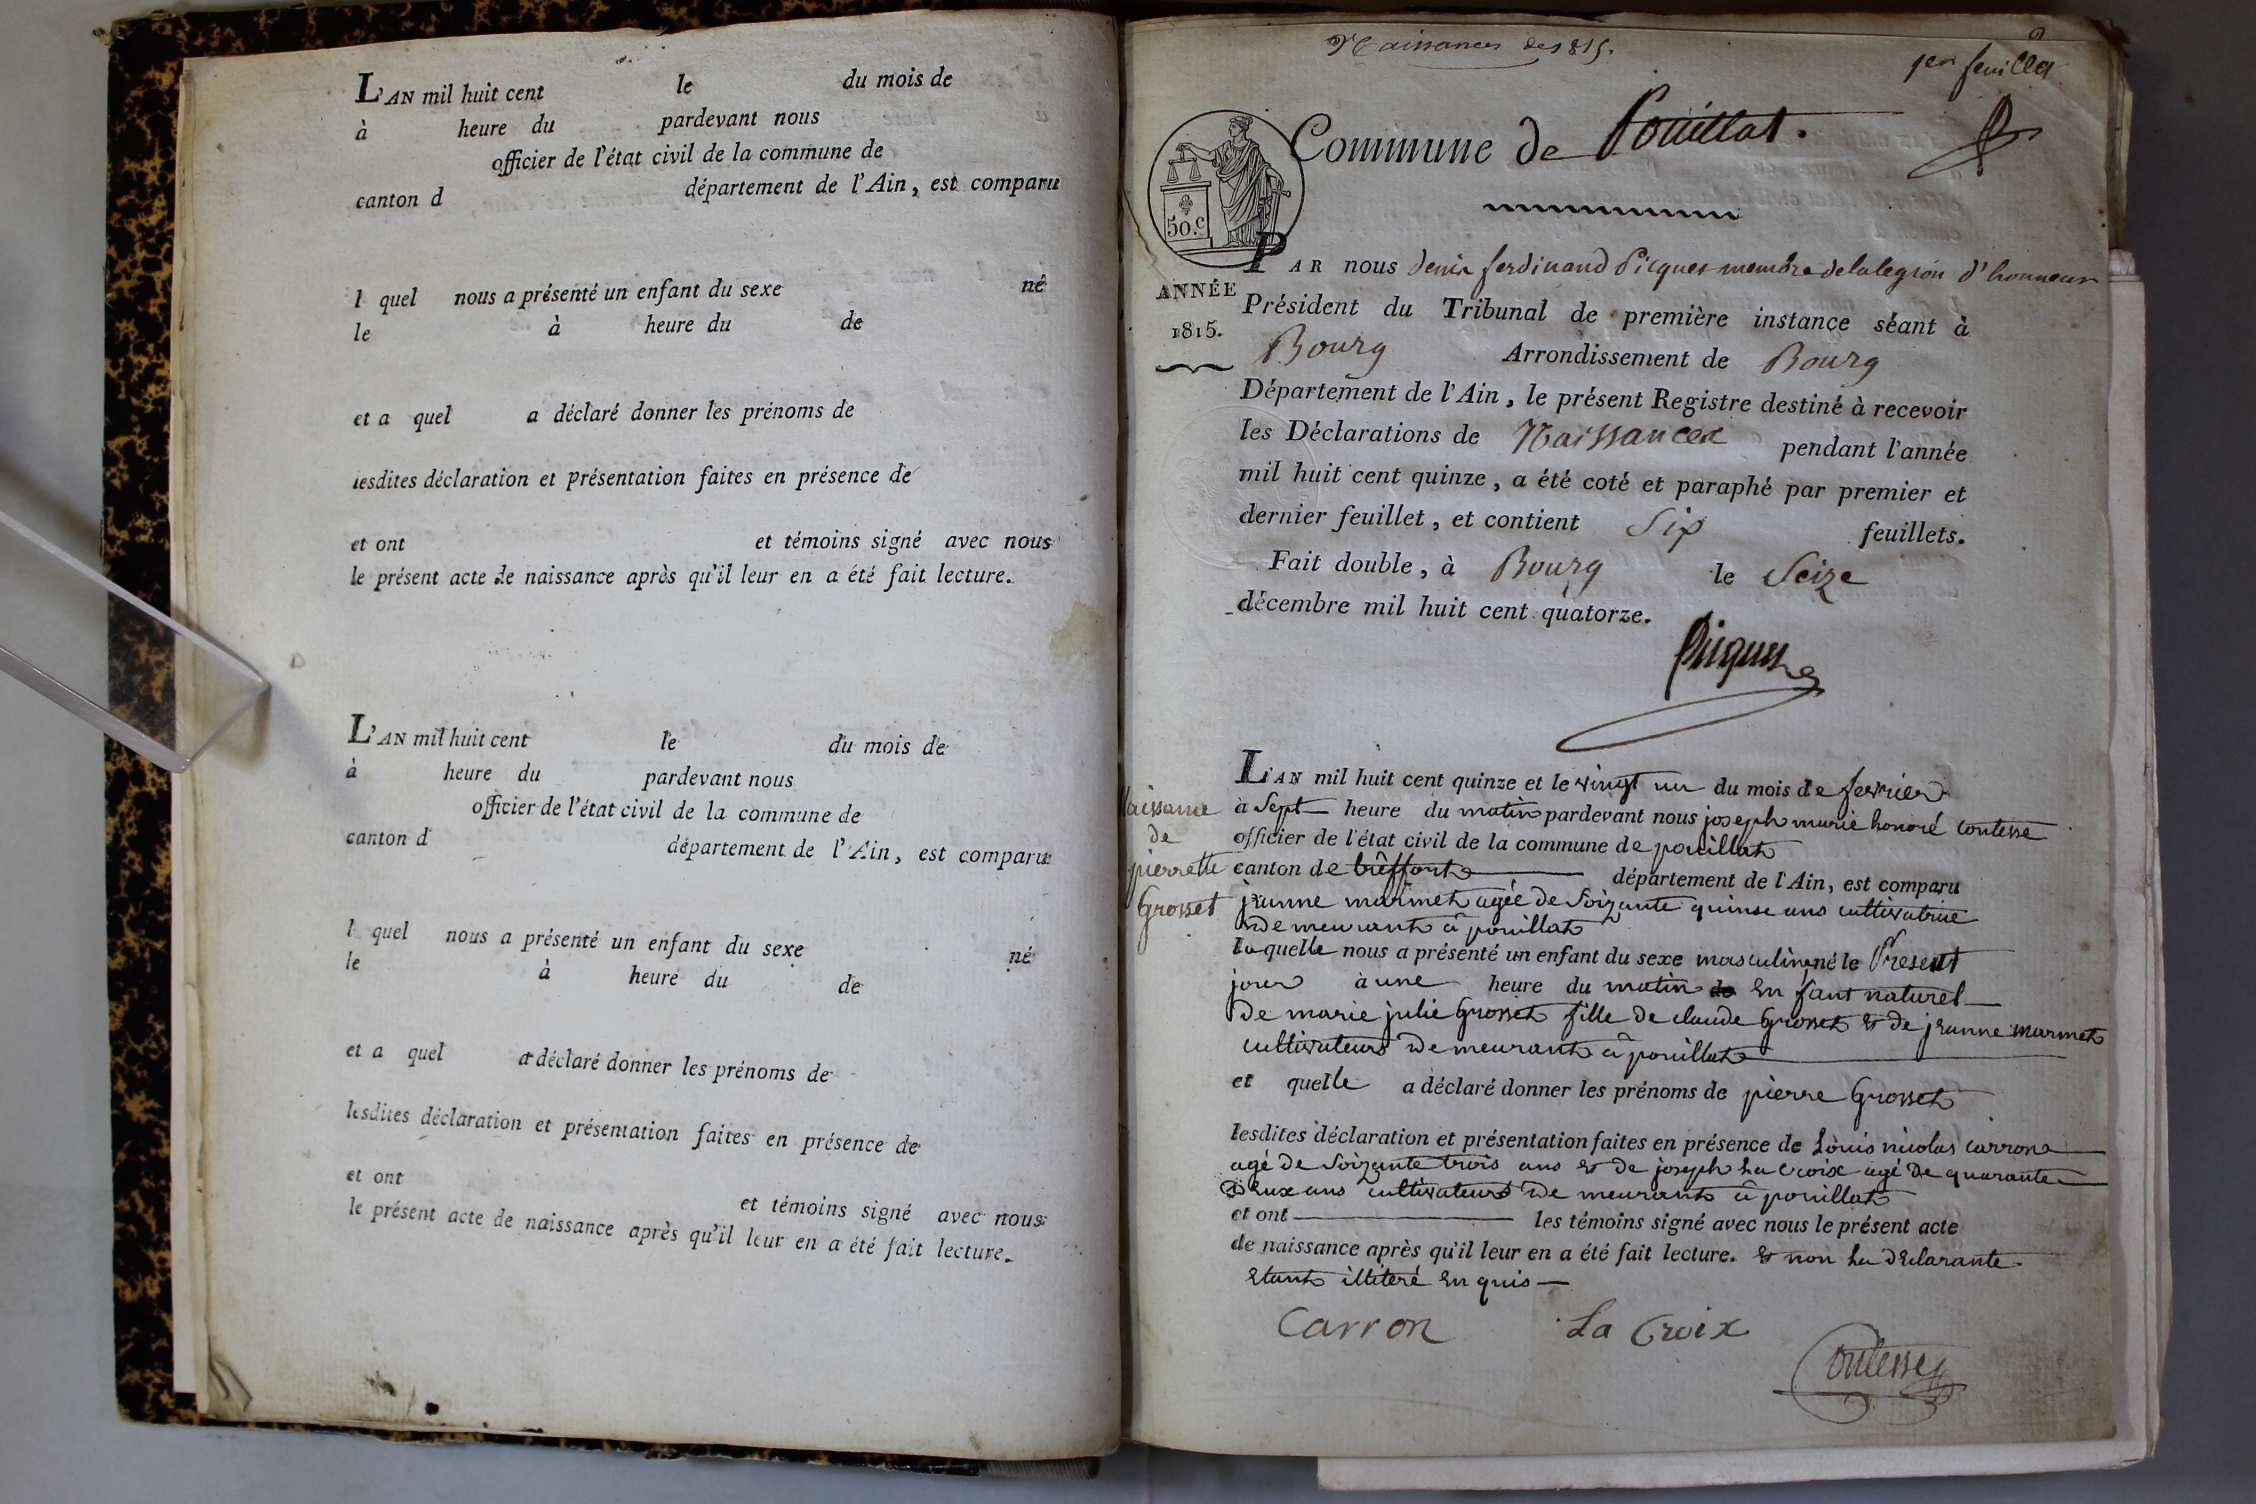 L'AN mil huit cent le du mois de
à heure du pardevant nous
officier de l'état civil de la commune de
canton d département de l'Ain, est comparu
l quel nous a présenté un enfant du sexe né
le à heure du de
et a quel a déclaré donner les prénoms de
lesdites déclaration et présentation faites en présence de
et ont et témoins signé avec nous
le présent acte de naissance après qu'il leur en a été fait lecture.
L'AN mil huit cent le du mois de
à heure du pardevant nous
officier de l'état civil de la commune de
canton d département de l'Ain, est comparu
l quel nous a présenté un enfant du sexe né
le à heure du de
et a quel a déclaré donner les prénoms de
lesdites déclaration et présentation faites en présence de
et ont et témoins signé avec nous
le présent acte de naissance après qu'il leur en a été fait lecture.
Naissances de 1815.
1er feuillet
Commune de Pouillat.
50.c
ANNÉE
1815.
PAR nous denis ferdinand Picquet membre de la legion d'honneur
Président du Tribunal de première instance séant à
Bourg Arrondissement de Bourg
Département de l'Ain, le présent Registre destiné à recevoir
les Déclarations de Naissances pendant l'année
mil huit cent quinze, a été coté et paraphé par premier et
dernier feuillet, et contient Six feuillets.
Fait double, à Bourg le Seize
décembre mil huit cent quatorze.
Picquet
naissance
de
pierrette
Grosset
L'AN mil huit cent quinze et le vingt un du mois de fevrier
à Sept heure du matin pardevant nous joseph marie honoré contesse
officier de l'état civil de la commune de pouillat
canton de trêffort département de l'Ain, est comparu
jeanne marmet agée de Soizante quinse ans cultivatrice
demeurant à pouillat
laquelle nous a présenté un enfant du sexe masculin né le Present
jour à une heure du matin de en fant naturel
de marie julie Grosset fille de claude Grosset et de jeanne marmet
cultivateurs demeurant à pouillat
et quelle a déclaré donner les prénoms de pierre Grosset
lesdites déclaration et présentation faites en présence de Louis nicolas carron
agé de Soizante trois ans et de joseph La croix agé de quarante
deux ans cultivateurs demeurant à pouillat
et ont les témoins signé avec nous le présent acte
de naissance après qu'il leur en a été fait lecture. et non La declarante
etant illiteré enquis
Carron La Croix
Contesse